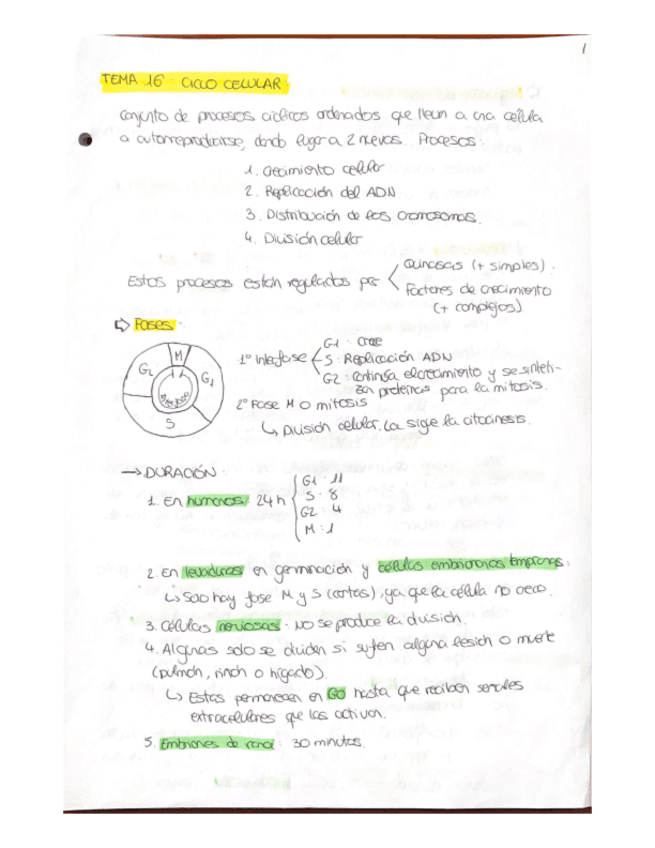 1
TEMA 16: CICLO CELULAR
Conjunto de procesos cíclicos ordenados que llevan a una célula
a autorreproducirse, dando lugar a 2 nuevas. Procesos:
1. Crecimiento celular
2. Replicación del ADN
3. Distribución de los cromosomas.
4. División celular
Estos procesos están regulados por
Quinasas (+ simples).
Factores de crecimiento
(+ complejos)
⇨ Fases:
M
G2
G1
S
Interfase
1º Interfase
G1: Crece
S: Replicación ADN
G2: Continúa el crecimiento y se sinteti-
zan proteínas para la mitosis.
2º Fase M o mitosis
↳ División celular. La sige la citocinesis.
→ DURACIÓN:
1. En humanos: 24h
G1: 11
S: 8
G2: 4
M: 1
2. En levaduras en germinación y células embrionarias tempranas:
↳ Solo hay fase M y S (cortas), ya que la célula no crece.
3. Células nerviosas: No se produce la división.
4. Algunas solo se dividen si sufren alguna lesión o muerte
(pulmón, riñón o hígado).
↳ Estas permanecen en G0 hasta que reciban señales
extracelulares que las activan.
5. Embriones de rana: 30 minutos.